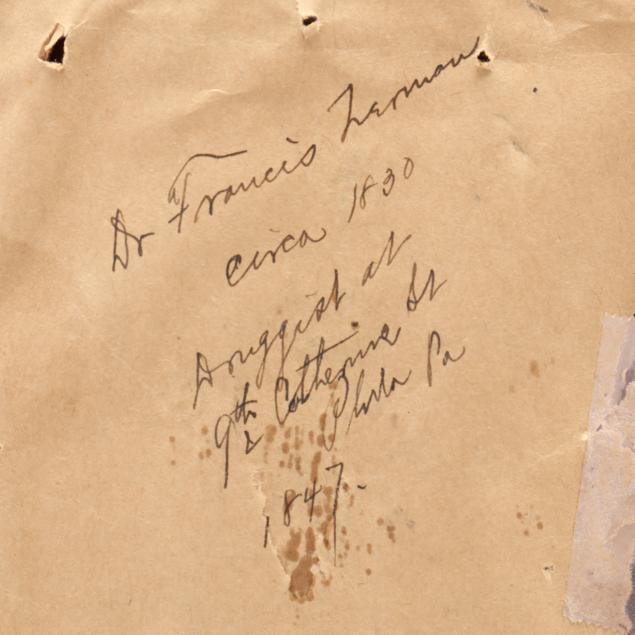 Dr Francis Zerman
circa 1830
Druggist at
9th & Catherine St
Phila Pa
1847.